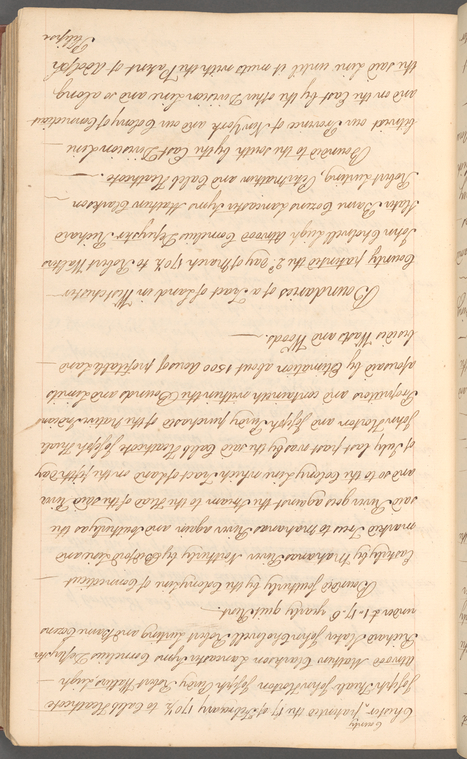 County
Chester, patented the 17 of February 170½ to Caleb Heathcote
Joseph Theale John Horton Joseph Purdy Robert Walters Leigh
Atwood Mathew Clarkson Lancaster Syms Cornelius Depeyster
Richard Slater John Cholwell Robert Lurting and Barne Cosens
under £1-17-6 yearly quit Rent.
Bounded southerly by the Colony Line of Connecticut
Easterly by Mahanas River Northerly by Bedford Line and
marked Trees to Mahanas River again and Southerly as the
said River goes against the stream to the Head of the said River
and so to the Colony Line which Tract of Land on the fifth Day
of July last past was by the said Caleb Heathcote Joseph Theale
John Horton and Joseph Purdy purchased of the Native Indians
Proprietors and containeth within the Bounds and Limits
aforesaid by Estimation about 1500 Acres of profitable Land
besides Wasts and Woods.
Boundaries of a Tract of Land in Westchester
County patented the 2d Day of March 170½ to Robert Walters
John Cholwell Leigh Atwood Cornelius Depeyster Richard
Slater Barne Cozens Lancaster Syms Mathew Clarkson
Robert Lurting, Peter Mathews and Caleb Heathcote
Bounded to the south by the East Division Line
betwixt our Province of New York and our Colony of Connecticut
and on the East by the other Division Line and so along
the said Line until it meets with the Patent of Adolph
Philipse